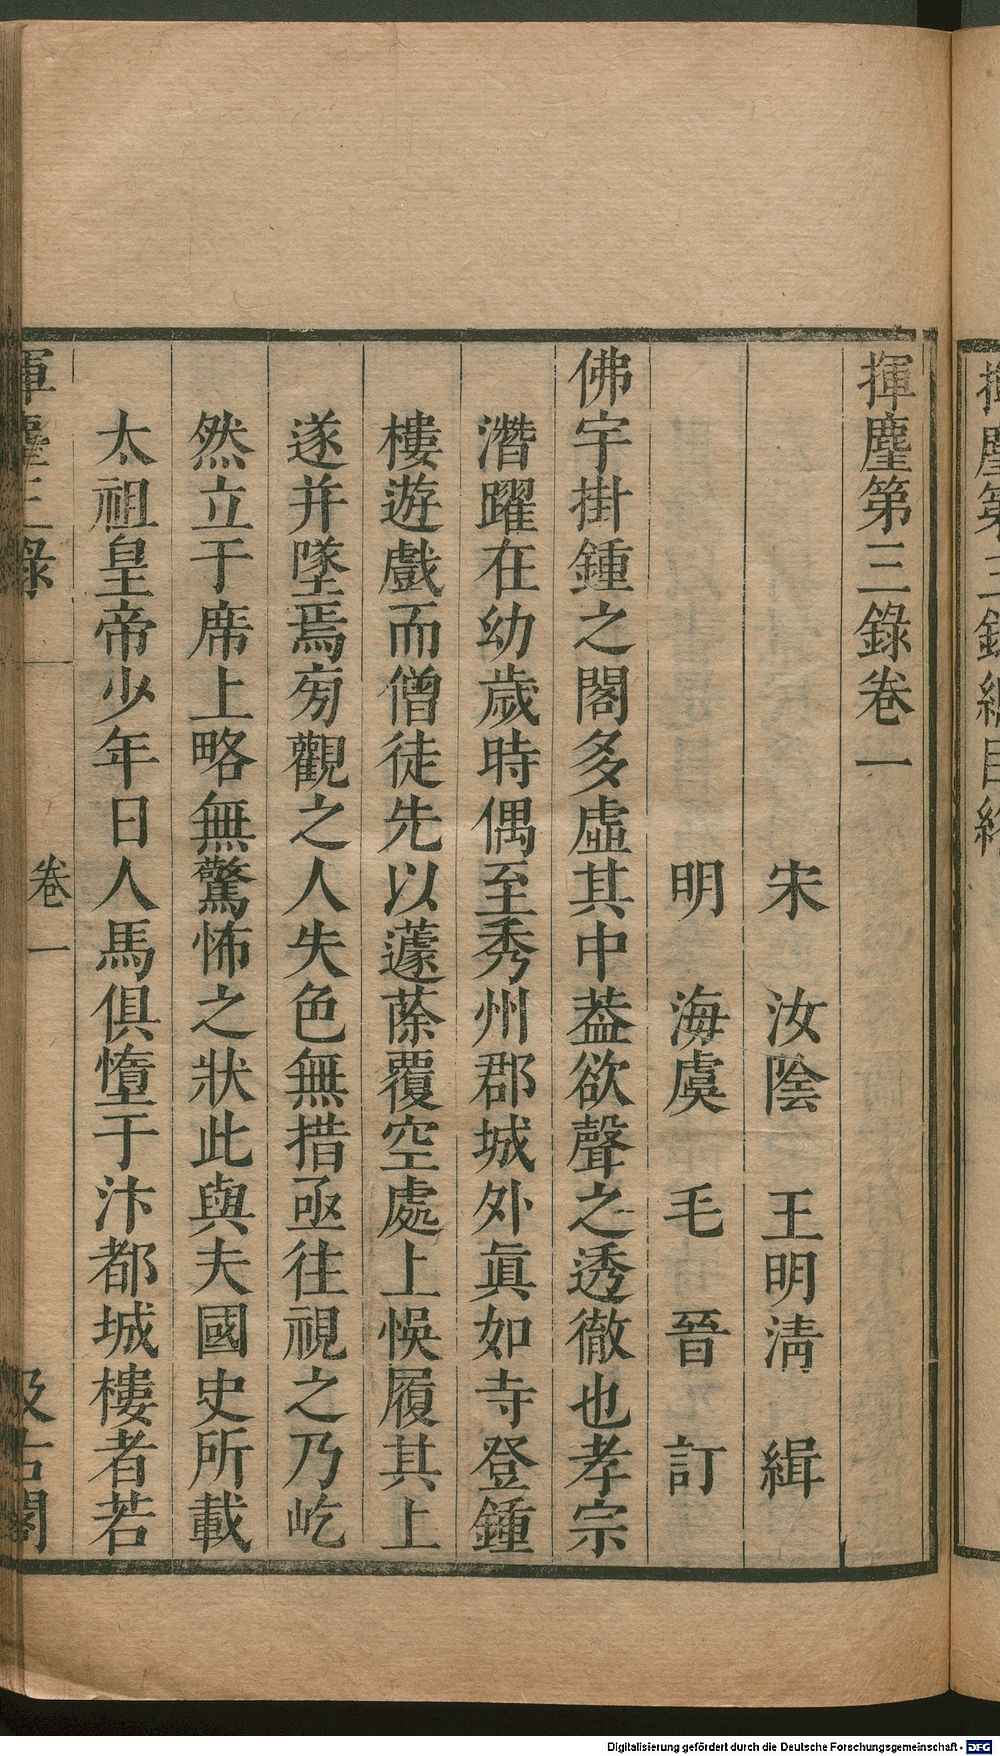 揮麈第三錄卷一
宋 汝陰 王明淸 緝
明 海虞 毛晉 訂
佛宇掛鍾之閣多虛其中葢欲聲之透徹也孝宗
潛躍在幼歲時偶至秀州郡城外眞如寺登鍾
樓遊戲而僧徒先以蘧蒢覆空處上悞履其上
遂并墜焉旁觀之人失色無措亟往視之乃屹
然立于席上略無驚怖之狀此與夫國史所載
太祖皇帝少年日人馬俱墮于汴都城樓者若
揮麈三錄 卷一 汲古閣
Digitalisierung gefördert durch die Deutsche Forschungsgemeinschaft - DFG